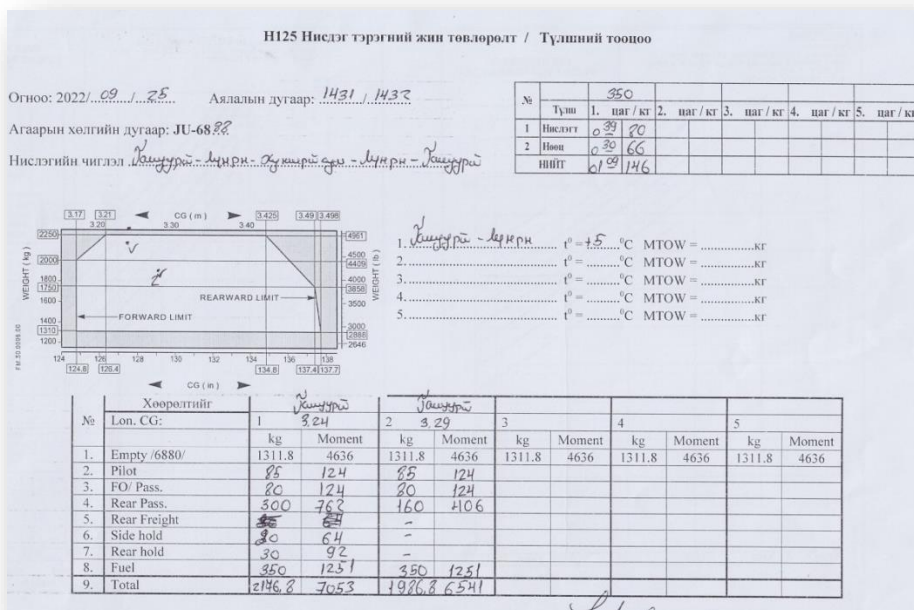 H125 Нисдэг тэрэгний жин төвлөрөлт / Түлшний тооцоо
Огноо: 2022/ 09 / 25 Аялалын дугаар: 1431 / 1432
Агаарын хөлгийн дугаар: JU-6888
Нислэгийн чиглэл
№ 350
Түлш 1. цаг / кг 2. цаг / кг 3. цаг / кг 4. цаг / кг 5. цаг / кг
1 Нислэгт 0 39 80
2 Нөөц 0 30 66
НИЙТ 01 09 146
3.17 3.21 CG ( m ) 3.425 3.49 3.498
3.20 3.30 3.40
WEIGHT ( kg )
2250 2000 1800 1750 1600 1400 1310 1200
WEIGHT ( lb )
4961 4500 4409 4000 3858 3500 3000 2888 2646
REARWARD LIMIT
FORWARD LIMIT
124 126 128 130 132 134 136 138
124.8 126.4 134.8 137.4 137.7
CG ( in )
1. t⁰ = +5 ⁰C MTOW = ............кг
2. t⁰ = ........⁰C MTOW = ............кг
3. t⁰ = ........⁰C MTOW = ............кг
4. t⁰ = ........⁰C MTOW = ............кг
5. t⁰ = ........⁰C MTOW = ............кг
№ Хөөрөлтийг
Lon. CG: 1 3,24 2 3,29 3 4 5
kg Moment kg Moment kg Moment kg Moment kg Moment
1. Empty /6880/ 1311.8 4636 1311.8 4636 1311.8 4636 1311.8 4636 1311.8 4636
2. Pilot 85 124 85 124
3. FO/ Pass. 80 124 80 124
4. Rear Pass. 300 762 160 406
5. Rear Freight -
6. Side hold 20 64 -
7. Rear hold 30 92 -
8. Fuel 350 1251 350 1251
9. Total 2176,8 7053 1986,8 6541